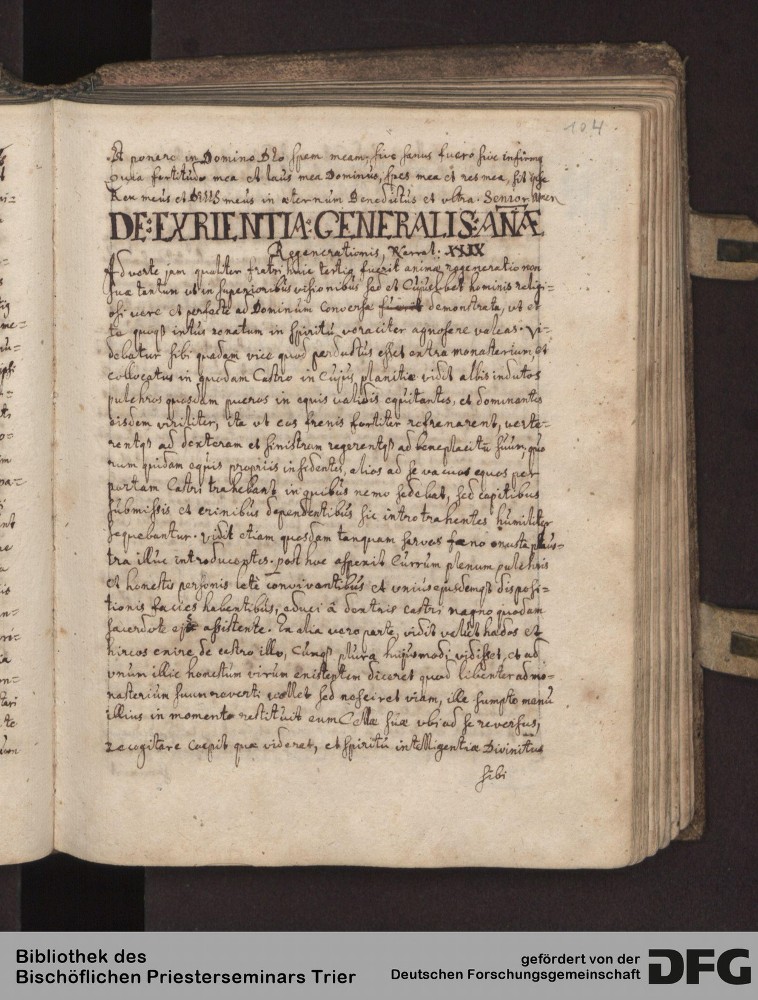 104.
Et ponere in Domino Deo spem meam, sive sanus fuero sive infirmq
quia fortitudo mea et laus mea Dominus, spes mea et res mea, sit ipse
Rex meus et DEUS meus in æternum Benedictus et ultra. Senior Amen
DE:EXRIENTIA:GENERALIS:ANÆ
Regenerationis, Narrat: XXIX
Adverte jam qualiter fratri huic tertia fuerit animæ regeneratio non
suæ tantum ut in superioribus visionibus sed et Cujuslibet hominis religi-
osi vere et perfecte ad Dominum Conversæ demonstrata, ut et
te quoqß intus renatum in spiritu veraciter agnoscere valeas. Vi-
debatur sibi quadam vice quod perductus esset extra monasterium, et
collocatus in quodam Castro in Cujus planitiæ vidit albis indutos
pulchros quosdam pueros in equis validis equitantes, et dominantes
eisdem viriliter, ita ut eos frenis fortiter refrænarent, verte-
rentqß ad dexteram et sinistram regerentqß ad beneplacitū suum, quo
rum quidam equis propriis insidentes, alios ad se vacuos equos per
portam Castri trahebant, in quibus nemo sedebat, sed capitibus
submissis et crinibus dependentibus sic intro trahentes humiliter
sequebantur. vidit etiam quosdam tanquam servos fæno onusta plaus-
tra illuc introducentes. post hæc aspexit Currum plenum pulchris
et honestis personis letè convivantibus et unius ejusdemqß disposi-
tionis facies habentibus, educi â dextris castri magno quodam
sacerdote assistente. In alia vero parte, vidit velut hædos et
hircos exire de castro illo, Cumqß plura hujusmodi vidisset, et ad
unum illic honestum virum existentem diceret quod libenter ad mo-
nasterium suum reverti vellet sed nesciret viam, ille sumpto manu
illius in momento restituit eum Cellæ suæ ubi ad se reversus,
recogitare coepit quæ videret, et spiritu intelligentiæ Divinitus
sibi
Bibliothek des
Bischöflichen Priesterseminars Trier
gefördert von der
Deutschen Forschungsgemeinschaft
DFG